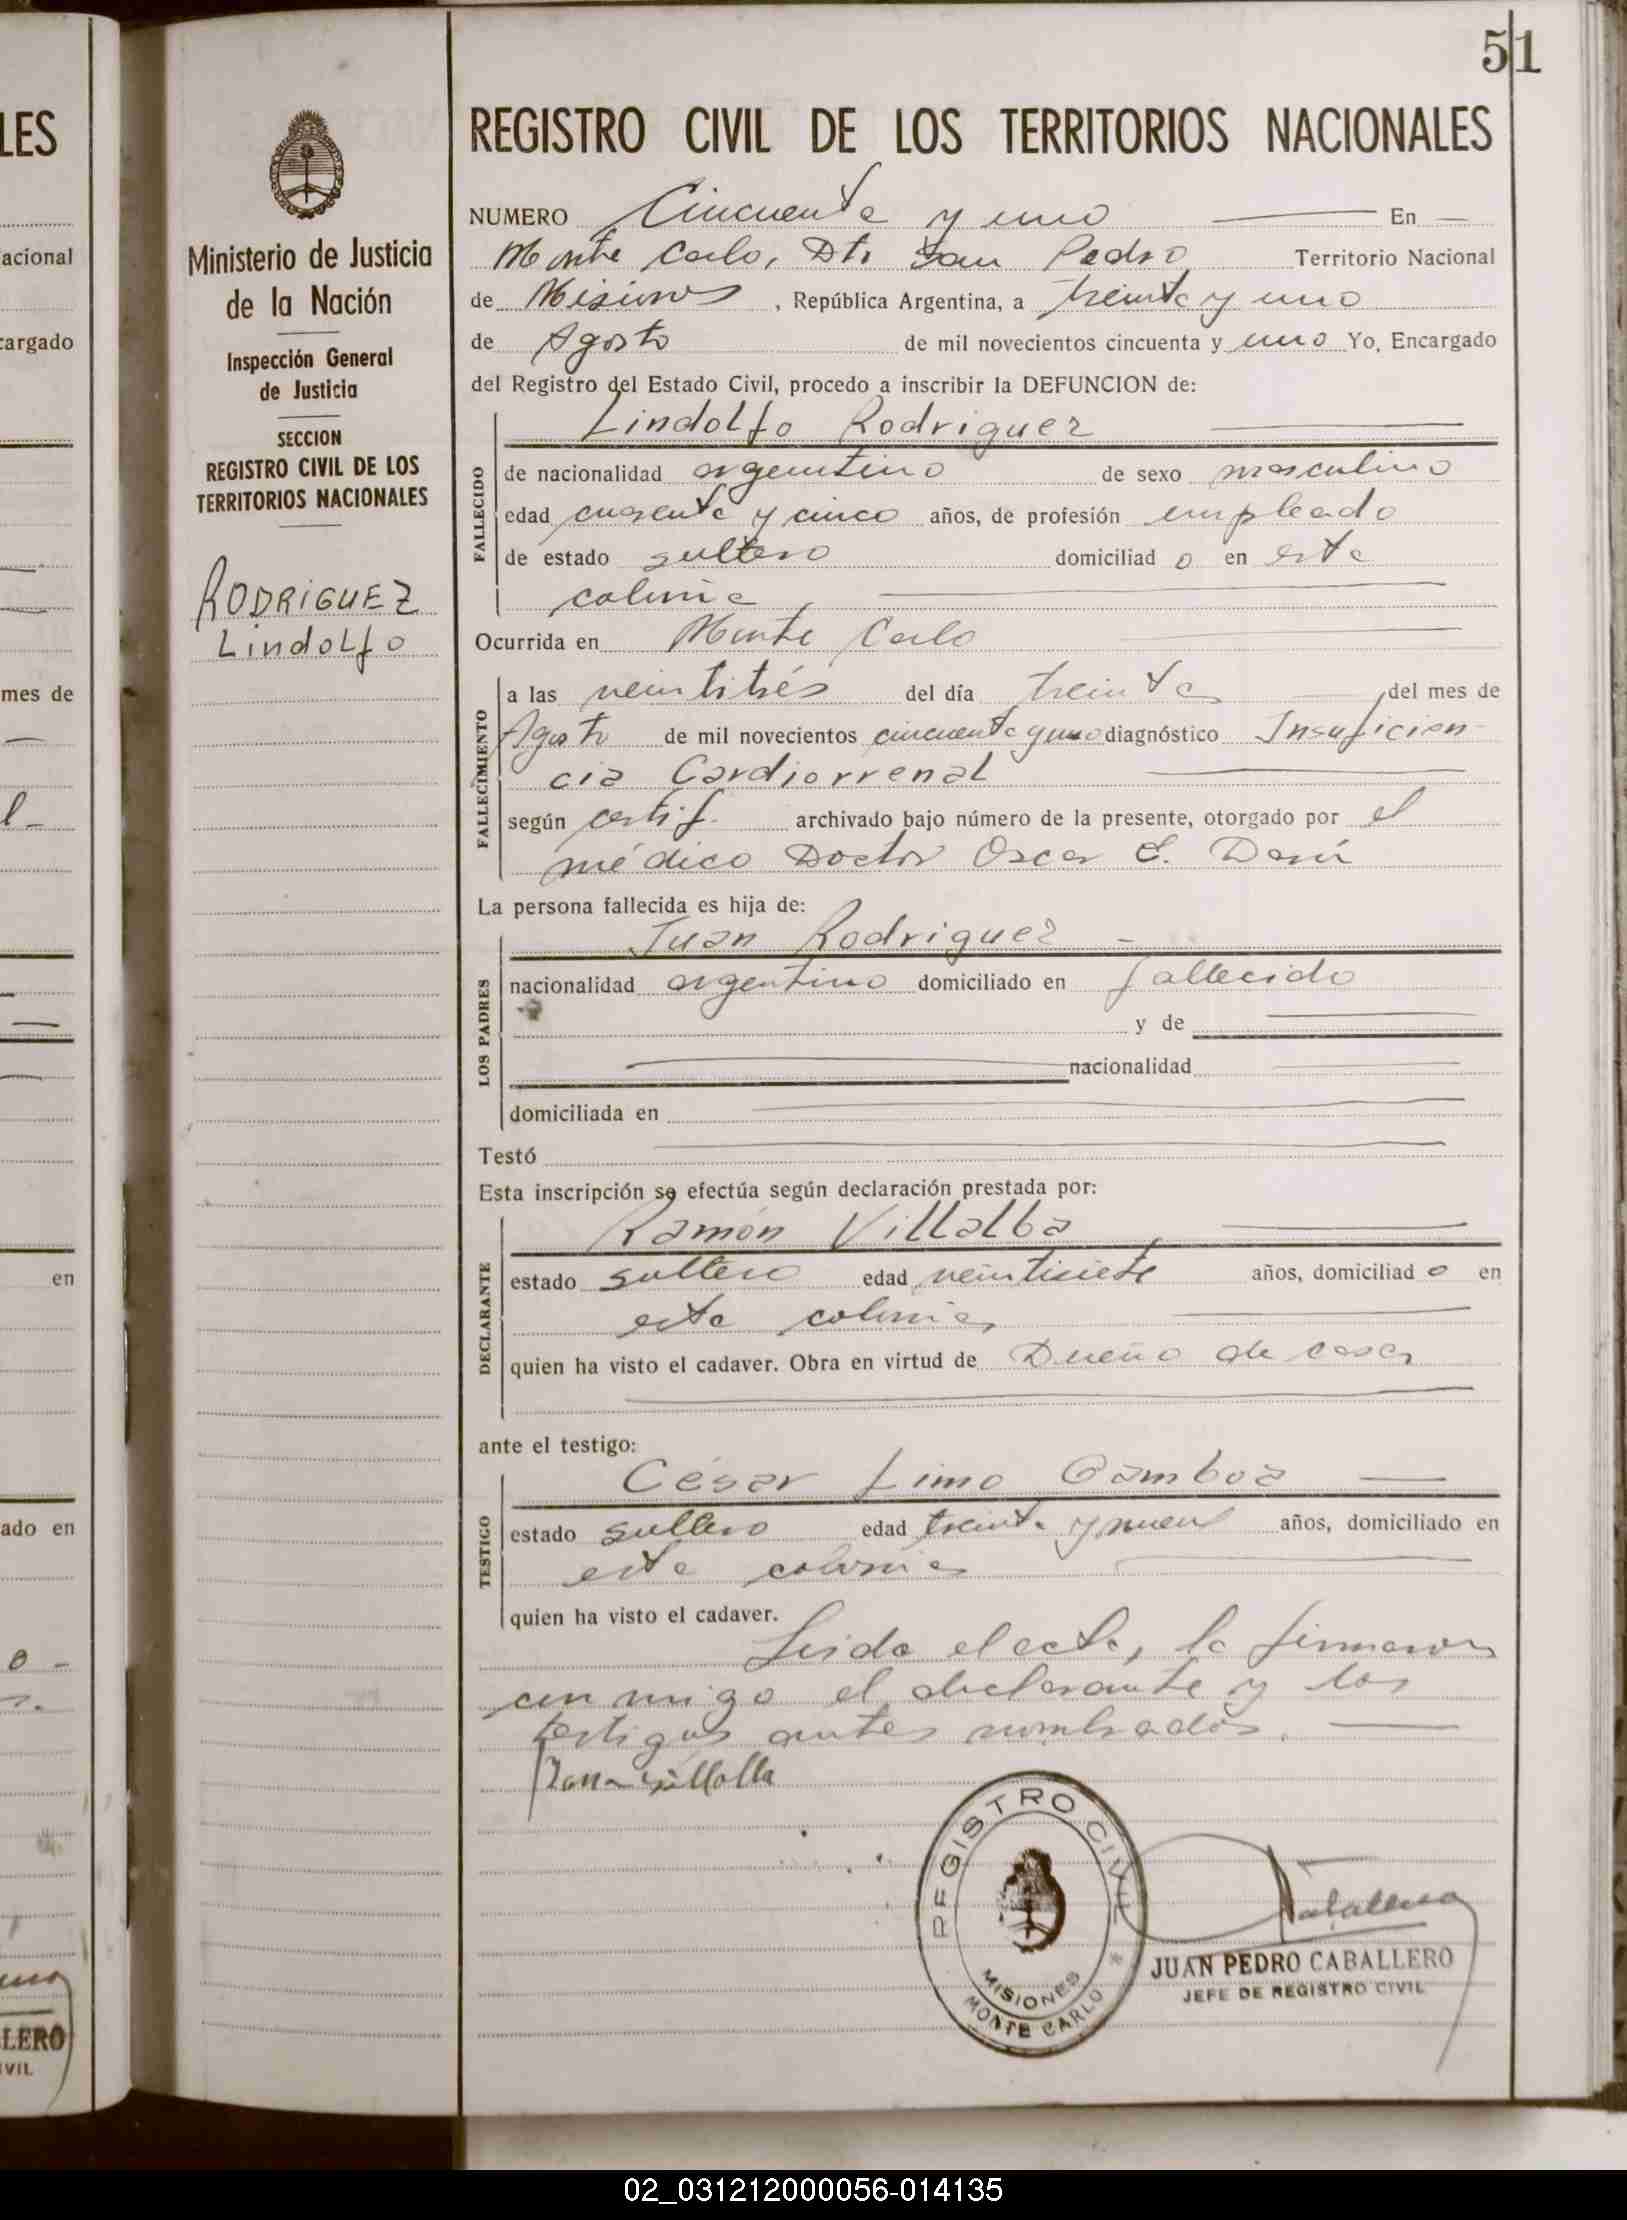 51
LES
REGISTRO CIVIL DE LOS TERRITORIOS NACIONALES
Ministerio de Justicia
de la Nación
Inspección General
de Justicia
SECCION
REGISTRO CIVIL DE LOS
TERRITORIOS NACIONALES
RODRIGUEZ
Lindolfo
NUMERO Cincuenta y uno En
Monte Carlo, Dto San Pedro Territorio Nacional
de Misiones, República Argentina, a treinta y uno
de Agosto de mil novecientos cincuenta y uno Yo, Encargado
del Registro del Estado Civil, procedo a inscribir la DEFUNCION de:
Lindolfo Rodriguez
FALLECIDO
de nacionalidad argentino de sexo masculino
edad cuarenta y cinco años, de profesión empleado
de estado soltero domiciliad o en esta
colonia
Ocurrida en Monte Carlo
FALLECIMIENTO
a las veintitrés del día treinta del mes de
Agosto de mil novecientos cincuenta y uno diagnóstico Insuficien-
cia Cardiorrenal
según certif. archivado bajo número de la presente, otorgado por el
médico Doctor Oscar E. Darú
La persona fallecida es hija de:
Juan Rodriguez
LOS PADRES
nacionalidad argentino domiciliado en fallecido
y de
nacionalidad
domiciliada en
Testó
Esta inscripción se efectúa según declaración prestada por:
Ramón Villalba
DECLARANTE
estado soltero edad veintisiete años, domiciliad o en
esta colonia
quien ha visto el cadaver. Obra en virtud de Dueño de casa
ante el testigo:
César Limo Gamboa
TESTIGO
estado soltero edad treinta y nueve años, domiciliado en
esta colonia
quien ha visto el cadaver.
Leida el acta, la firmaron
conmigo el declarante y los
testigos antes nombrados.
REGISTRO CIVIL
MISIONES
MONTE CARLO
Caballero
JUAN PEDRO CABALLERO
JEFE DE REGISTRO CIVIL
acional
cargado
mes de
en
ado en
LLERO
IVIL
02_031212000056-014135